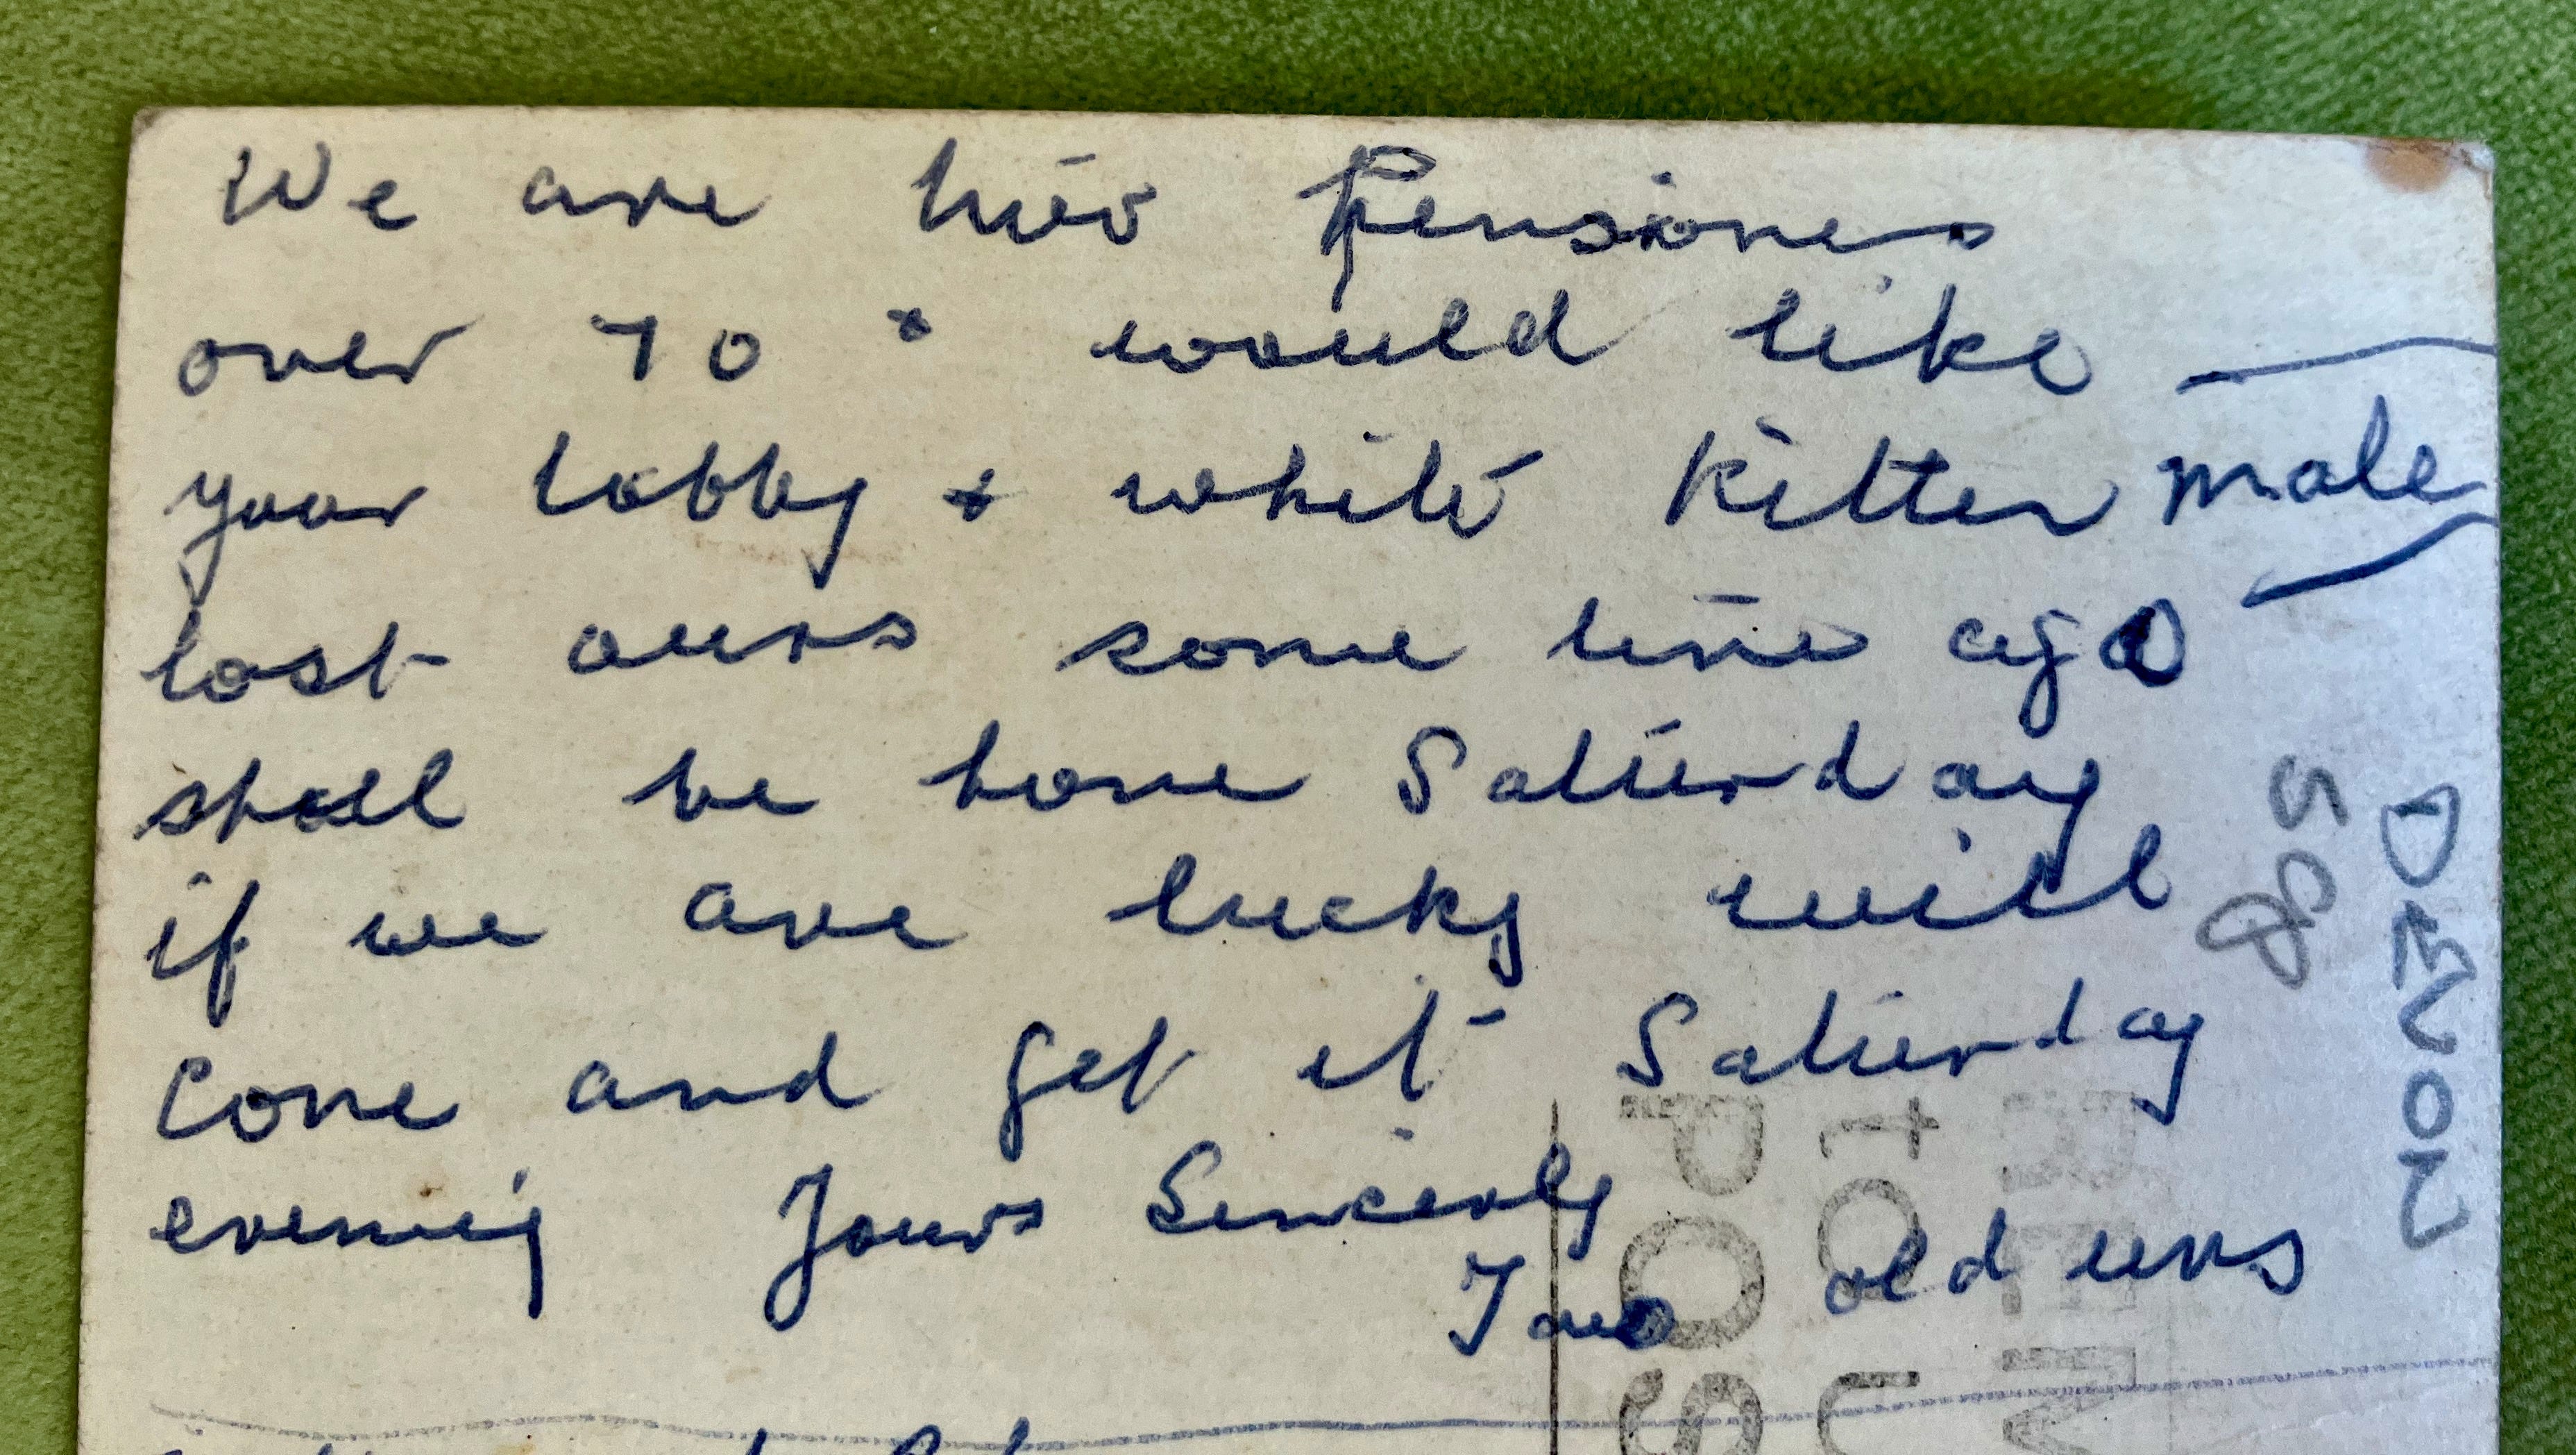 We are two Pensioners
over 70 & would like
your tabby & white Kitten male
lost ours some time ago
shall be home Saturday
if we are lucky will
Come and get it Saturday
evening Yours Sincerly
Two old uns
DEVON